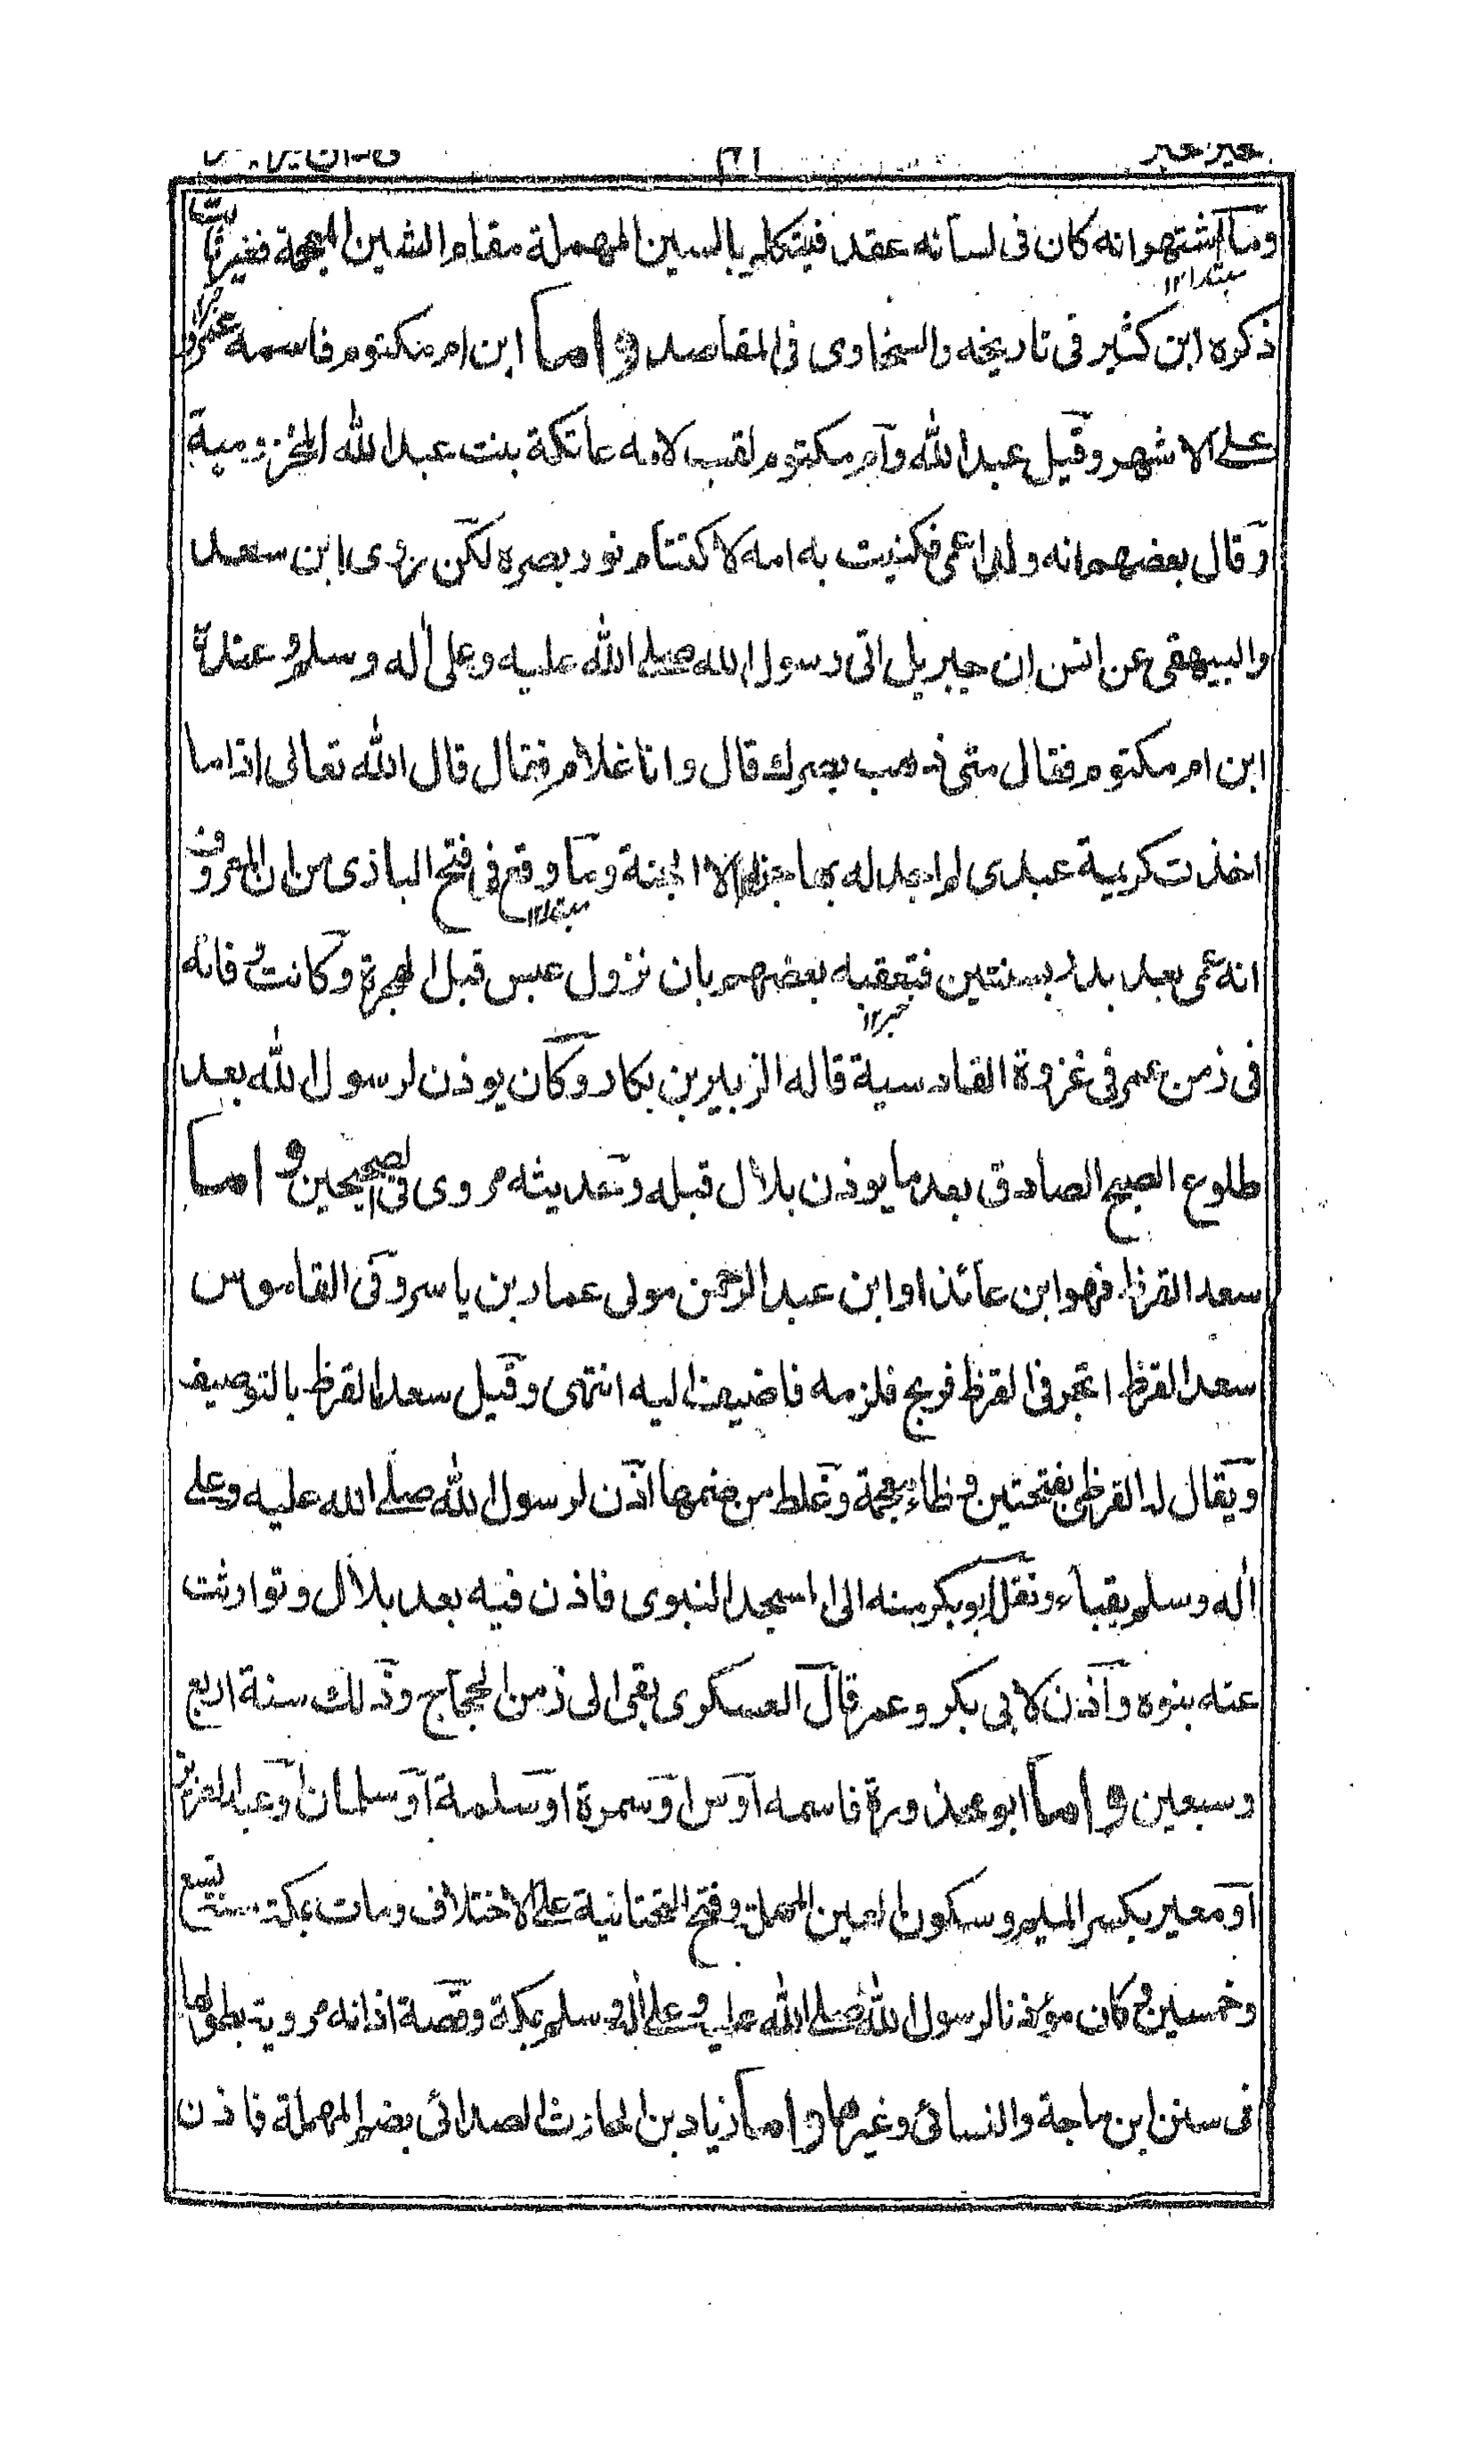 وما اشتهر انه كان فى لسانه عقد فيتكلم بالسين المهملة مقام الشين المعجمة فغير ثابت
مبتدا ١٢
ذكره ابن كثير فى تاريخه والسخاوى فى المقاصد واما ابن ام مكتوم فاسمه عمرو
على الاشهر وقيل عبد الله وام مكتوم لقب لامه عاتكة بنت عبد الله المخزومية
وقال بعضهم انه ولد اعمى فكنيت به امه لاكتتام نور بصره لكن روى ابن سعد
والبيهقى عن انس ان جبريل اتى رسول الله صلى الله عليه وعلى اله وسلم وعنده
ابن ام مكتوم فقال متى ذهب بصرك قال وانا غلام فقال قال الله تعالى اذا ما
اخذت كريمة عبدى لم اجد له بها جزاء الا الجنة وما وقع فى فتح البارى من ان المعروف
مبتدا ١٢
انه عمى بعد بدر بسنتين فتعقبه بعضهم بان نزول عبس قبل الهجرة وكانت وفاته
خبر ١٢
فى زمن عمر فى غزوة القادسية قاله الزبير بن بكار وكان يوذن لرسول الله بعد
طلوع الصبح الصادق بعد ما يوذن بلال قبله وحديثه مروى فى الصحيحين واما
سعد القرظ فهو ابن عائذ او ابن عبد الرحمن مولى عمار بن ياسر وفى القاموس
سعد القرظ اتجر فى القرظ فربح فلزمه فاضيف اليه انتهى وقيل سعد القرظ بالتوصيف
ويقال له القرظى بفتحتين وظاء معجمة وغلط من ضمها اذن لرسول الله صلى الله عليه وعلى
اله وسلم بقباء ونقل ابو بكر منه الى المسجد النبوى فاذن فيه بعد بلال وتوارثت
عنه بنوه واذن لابى بكر وعمر قال العسكرى بقى الى زمن الحجاج وذلك سنة اربع
وسبعين واما ابو محذورة فاسمه اوس او سمرة او سلمة او سلمان او عبد العزيز
او معير بكسر الميم وسكون العين المهملة وفتح التحتانية على الاختلاف ومات بمكة سنة تسع
وخمسين وكان مؤذنا لرسول الله صلى الله عليه وعلى اله وسلم بمكة وقصة اذانه مروية بطولها
فى سنن ابن ماجة والنسائى وغيرهما واما زياد بن الحارث الصدائى بضم المهملة فاذن